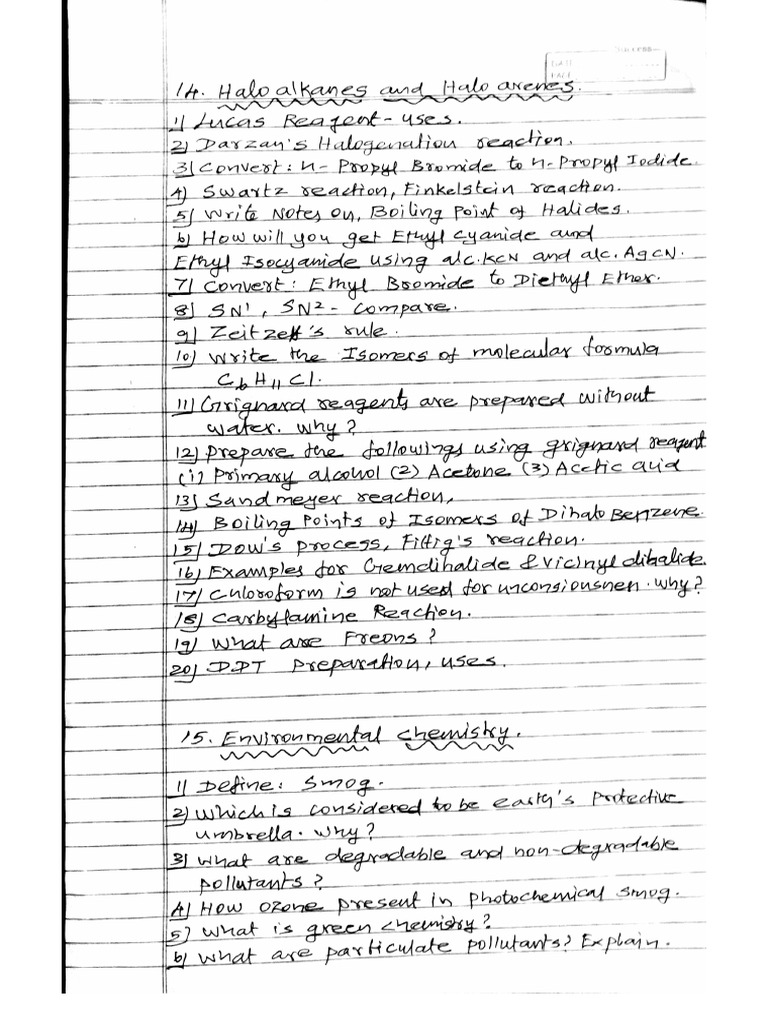 Success
DATE
PAGE
14. Haloalkanes and Halo arenes.
1) Lucas Reagent - uses.
2) Darzan's Halogenation reaction.
3) Convert: n- Propyl Bromide to n-Propyl Iodide.
4) Swartz reaction, Finkelstein reaction.
5) Write Notes on, Boiling Point of Halides.
6) How will you get Ethyl Cyanide and
Ethyl Isocyanide using alc.KCN and alc. AgCN.
7) Convert: Ethyl Bromide to Diethyl Ether.
8) SN1, SN2 - Compare.
9) Zeitzeff's rule.
10) Write the Isomers of molecular formula
C6H11Cl.
11) Grignard reagents are prepared without
water. Why?
12) Prepare the followings using grignard reagent
(1) Primary alcohol (2) Acetone (3) Acetic acid
13) Sandmeyer reaction,
14) Boiling Points of Isomers of Dihalo Benzene.
15) Dow's process, Fittig's reaction.
16) Examples for Gemdihalide & Vicinyl dihalide.
17) Chloroform is not used for unconsiousnen. Why?
18) Carbylamine Reaction.
19) What are Freons?
20) DDT preparation, uses.
15. Environmental Chemistry.
1) Define: Smog.
2) Which is considered to be earth's Protective
umbrella. Why?
3) What are degradable and non-degradable
pollutants?
4) How ozone present in photochemical smog.
5) What is green chemistry?
6) What are particulate pollutants? Explain.